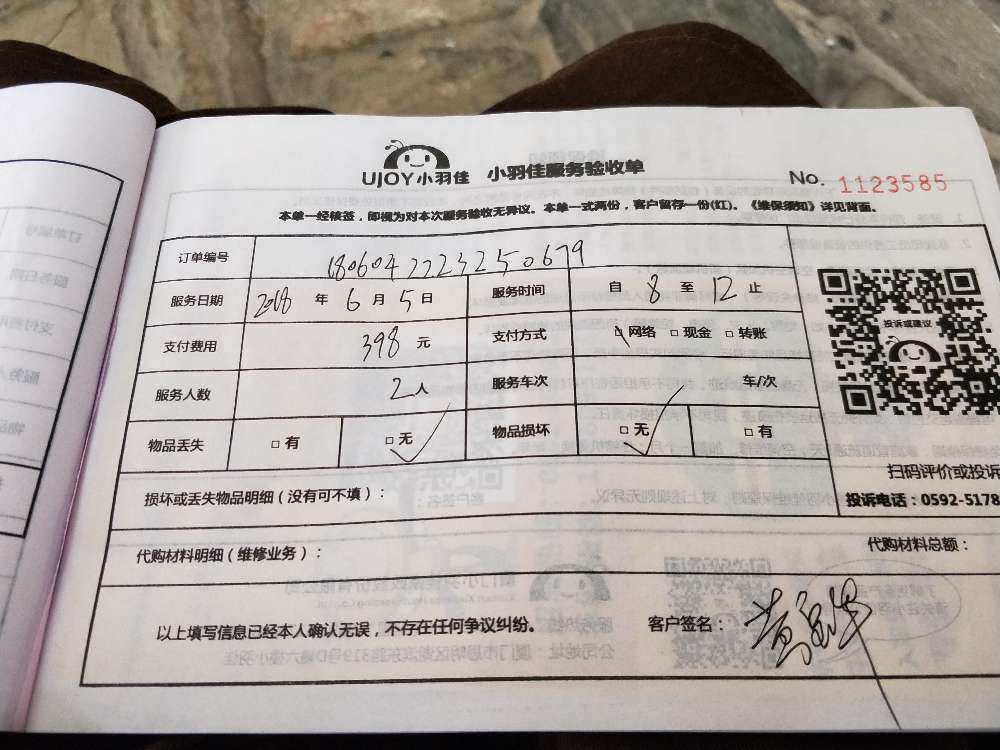 UJOY小羽佳 小羽佳服务验收单
No. 1123585
本单一经核签，即视为对本次服务验收无异议。本单一式两份，客户留存一份(红)。《维保须知》详见背面。
订单编号
服务日期 2018 年 6 月 5 日 服务时间 自 8 至 12 止
支付费用 398 元 支付方式 □网络 □现金 □转账
投诉或建议
服务人数 2人 服务车次 车/次
物品丢失 □有 □无 ✓ 物品损坏 □无 ✓ □有
扫码评价或投诉
损坏或丢失物品明细（没有可不填）：
投诉电话：0592-5178
代购材料明细（维修业务）： 代购材料总额：
以上填写信息已经本人确认无误，不存在任何争议纠纷。 客户签名：